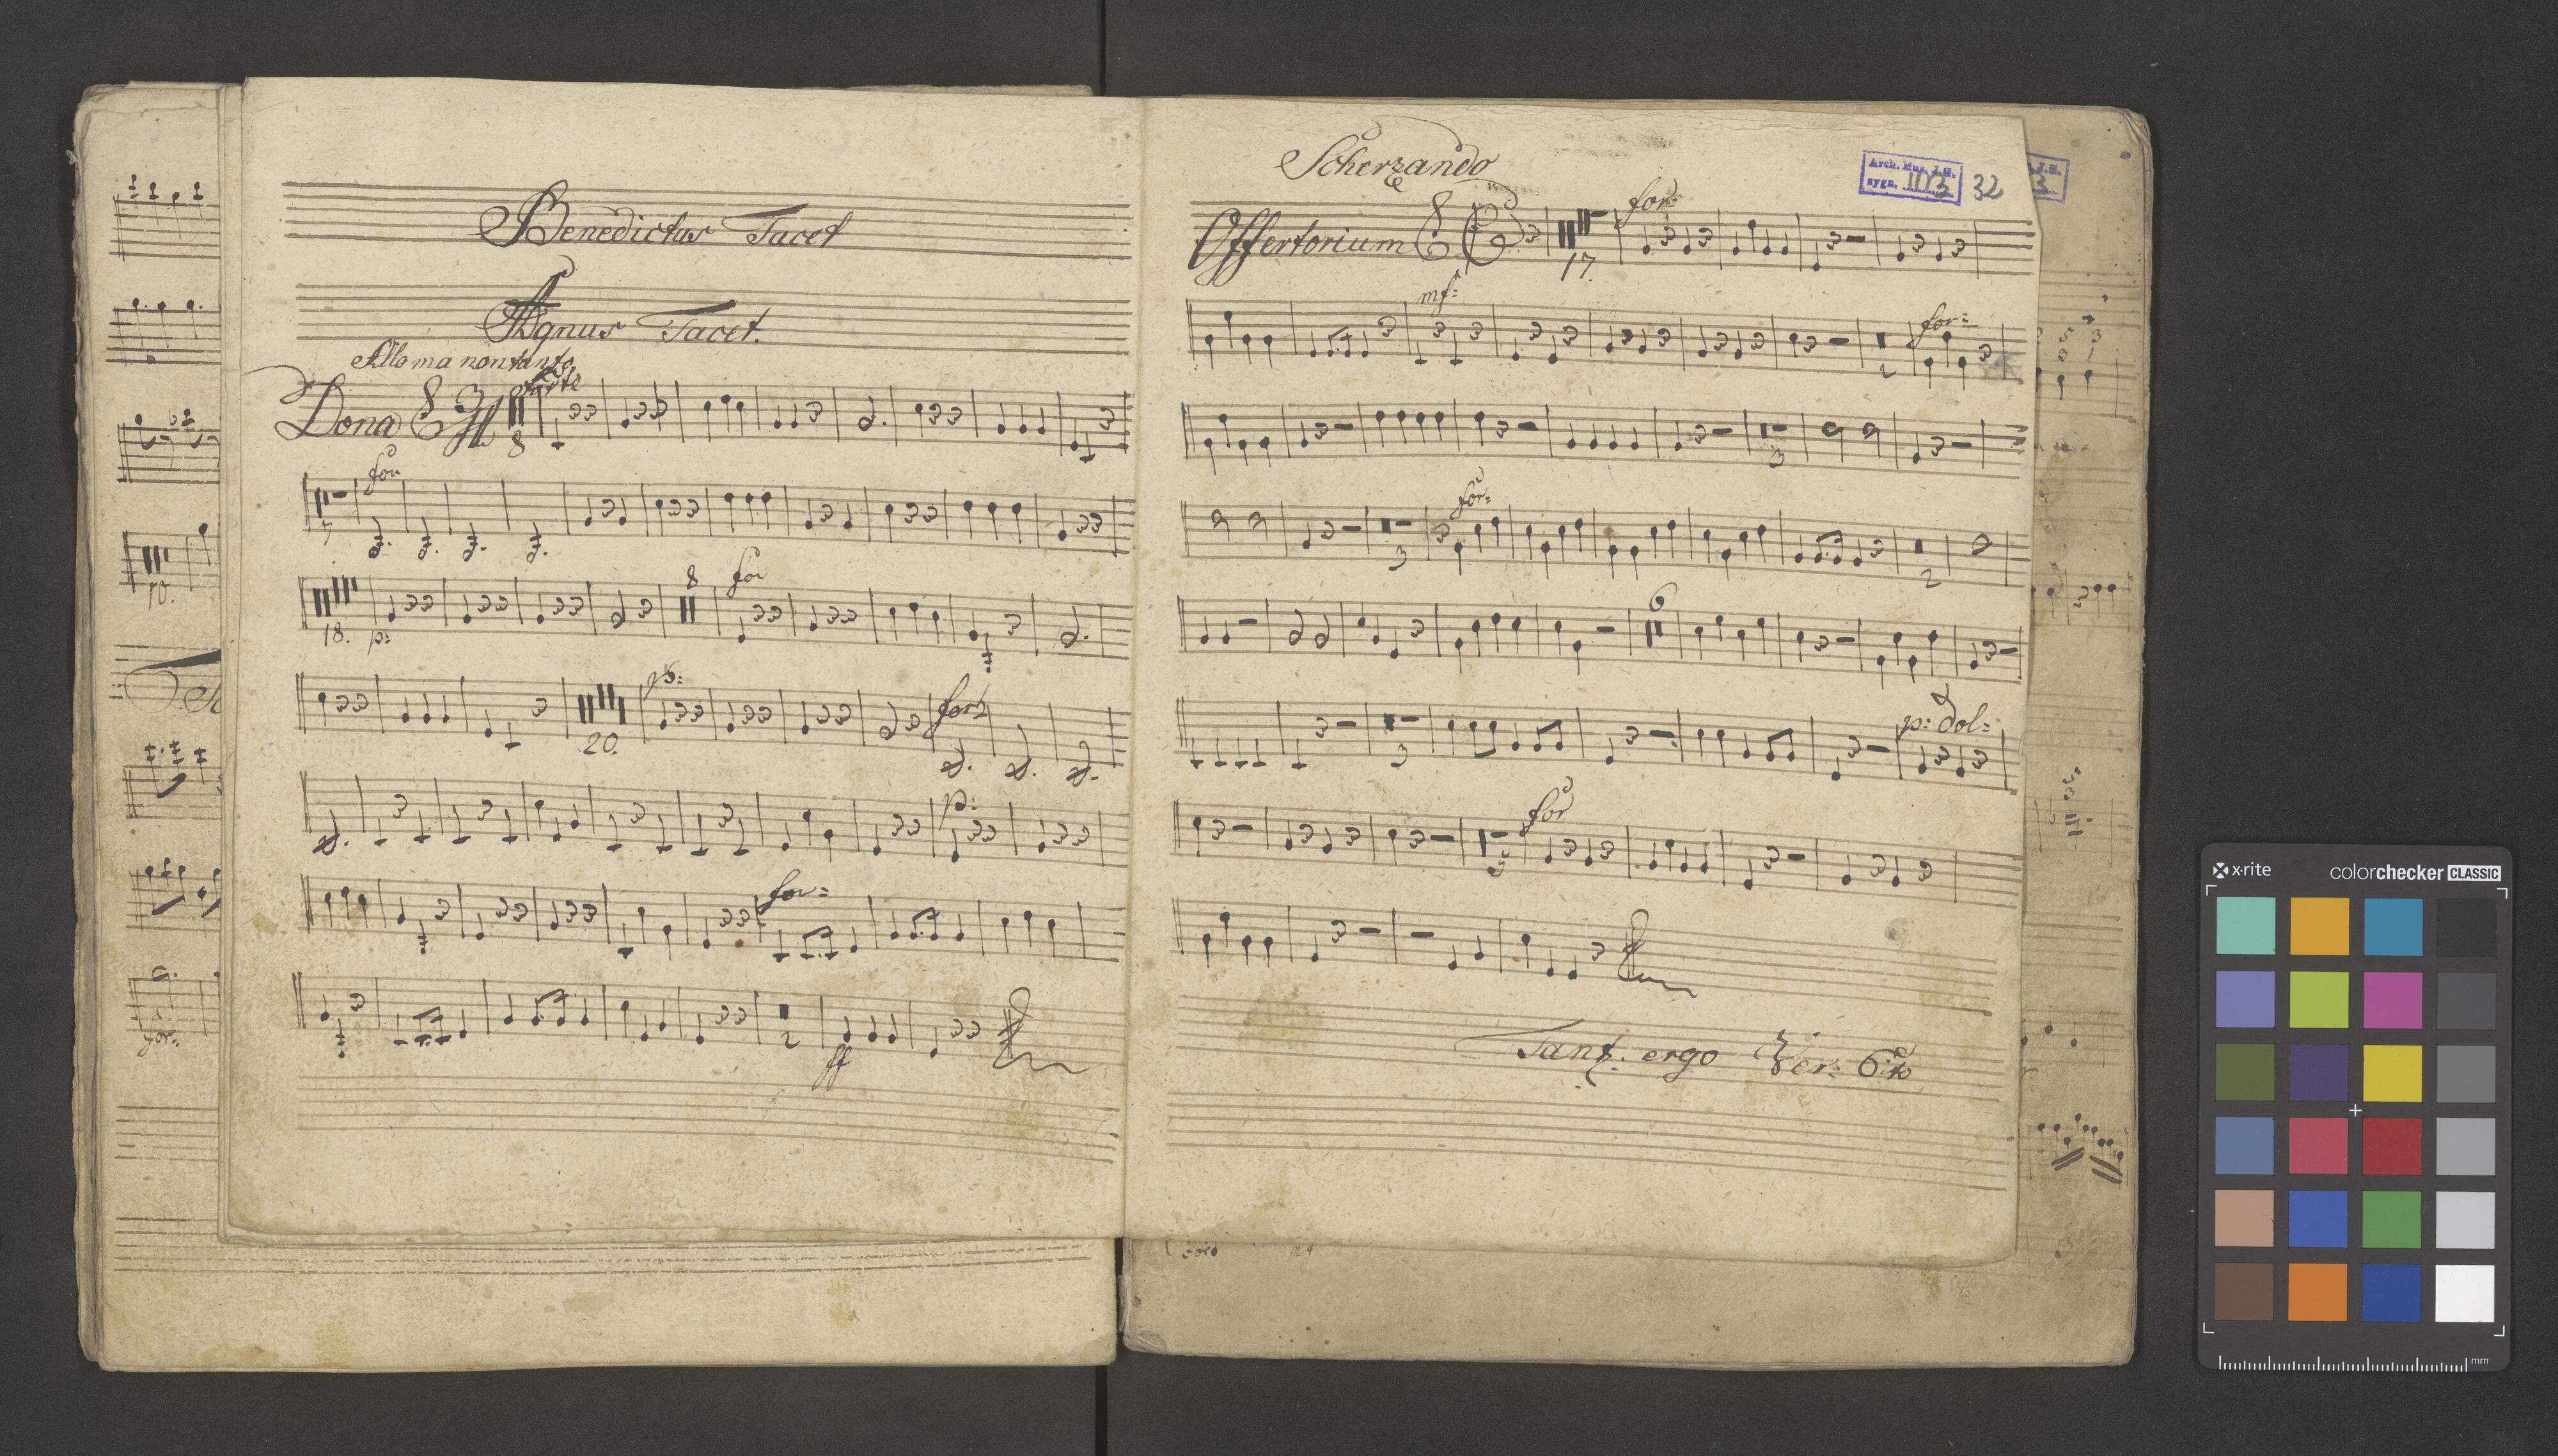 Benedictus Tacet
Agnus Tacet.
Allo ma non tanto
Dona
8
for
7
18. p:
8
for
20.
for:
p:
for:
for:
2
ff
10.
Scherzando
Arch. Mus. J.G.
sygn. 1113
32
for:
Offertorium
17.
mf:
for:
2
3
for:
3
2
6
3
p: dol:
for
5
Tant. ergo Ver: 6to
x·rite
colorchecker CLASSIC
mm